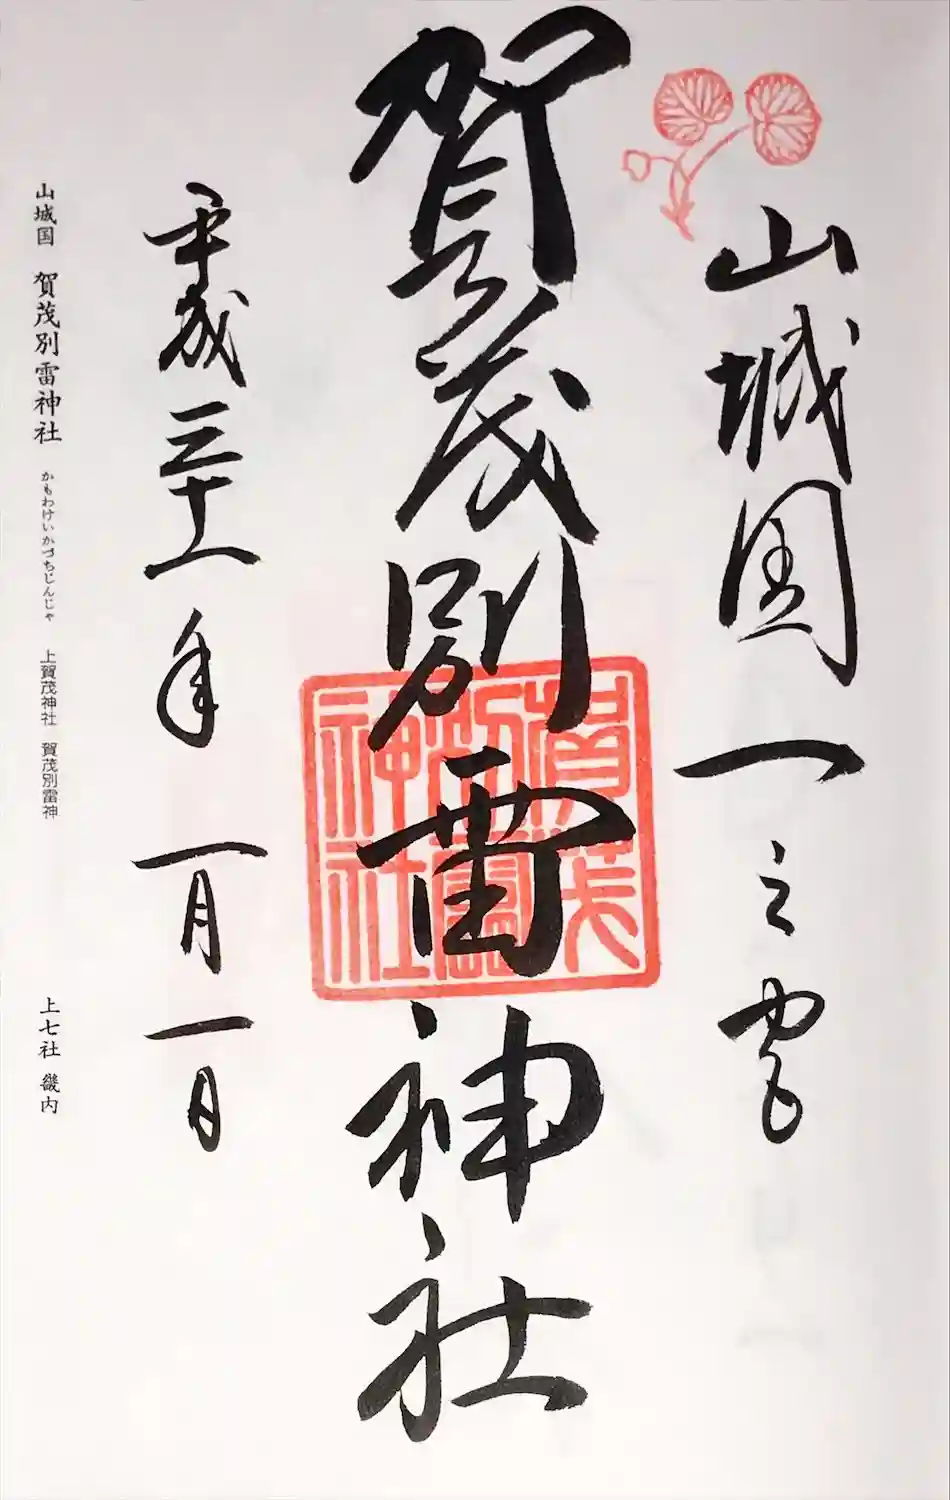 山城国一之宮
賀茂別雷神社
賀茂
別雷
神社
平成三十一年 一月一日
山城国 賀茂別雷神社 かもわけいかづちじんじゃ 上賀茂神社 賀茂別雷神 上七社 畿内